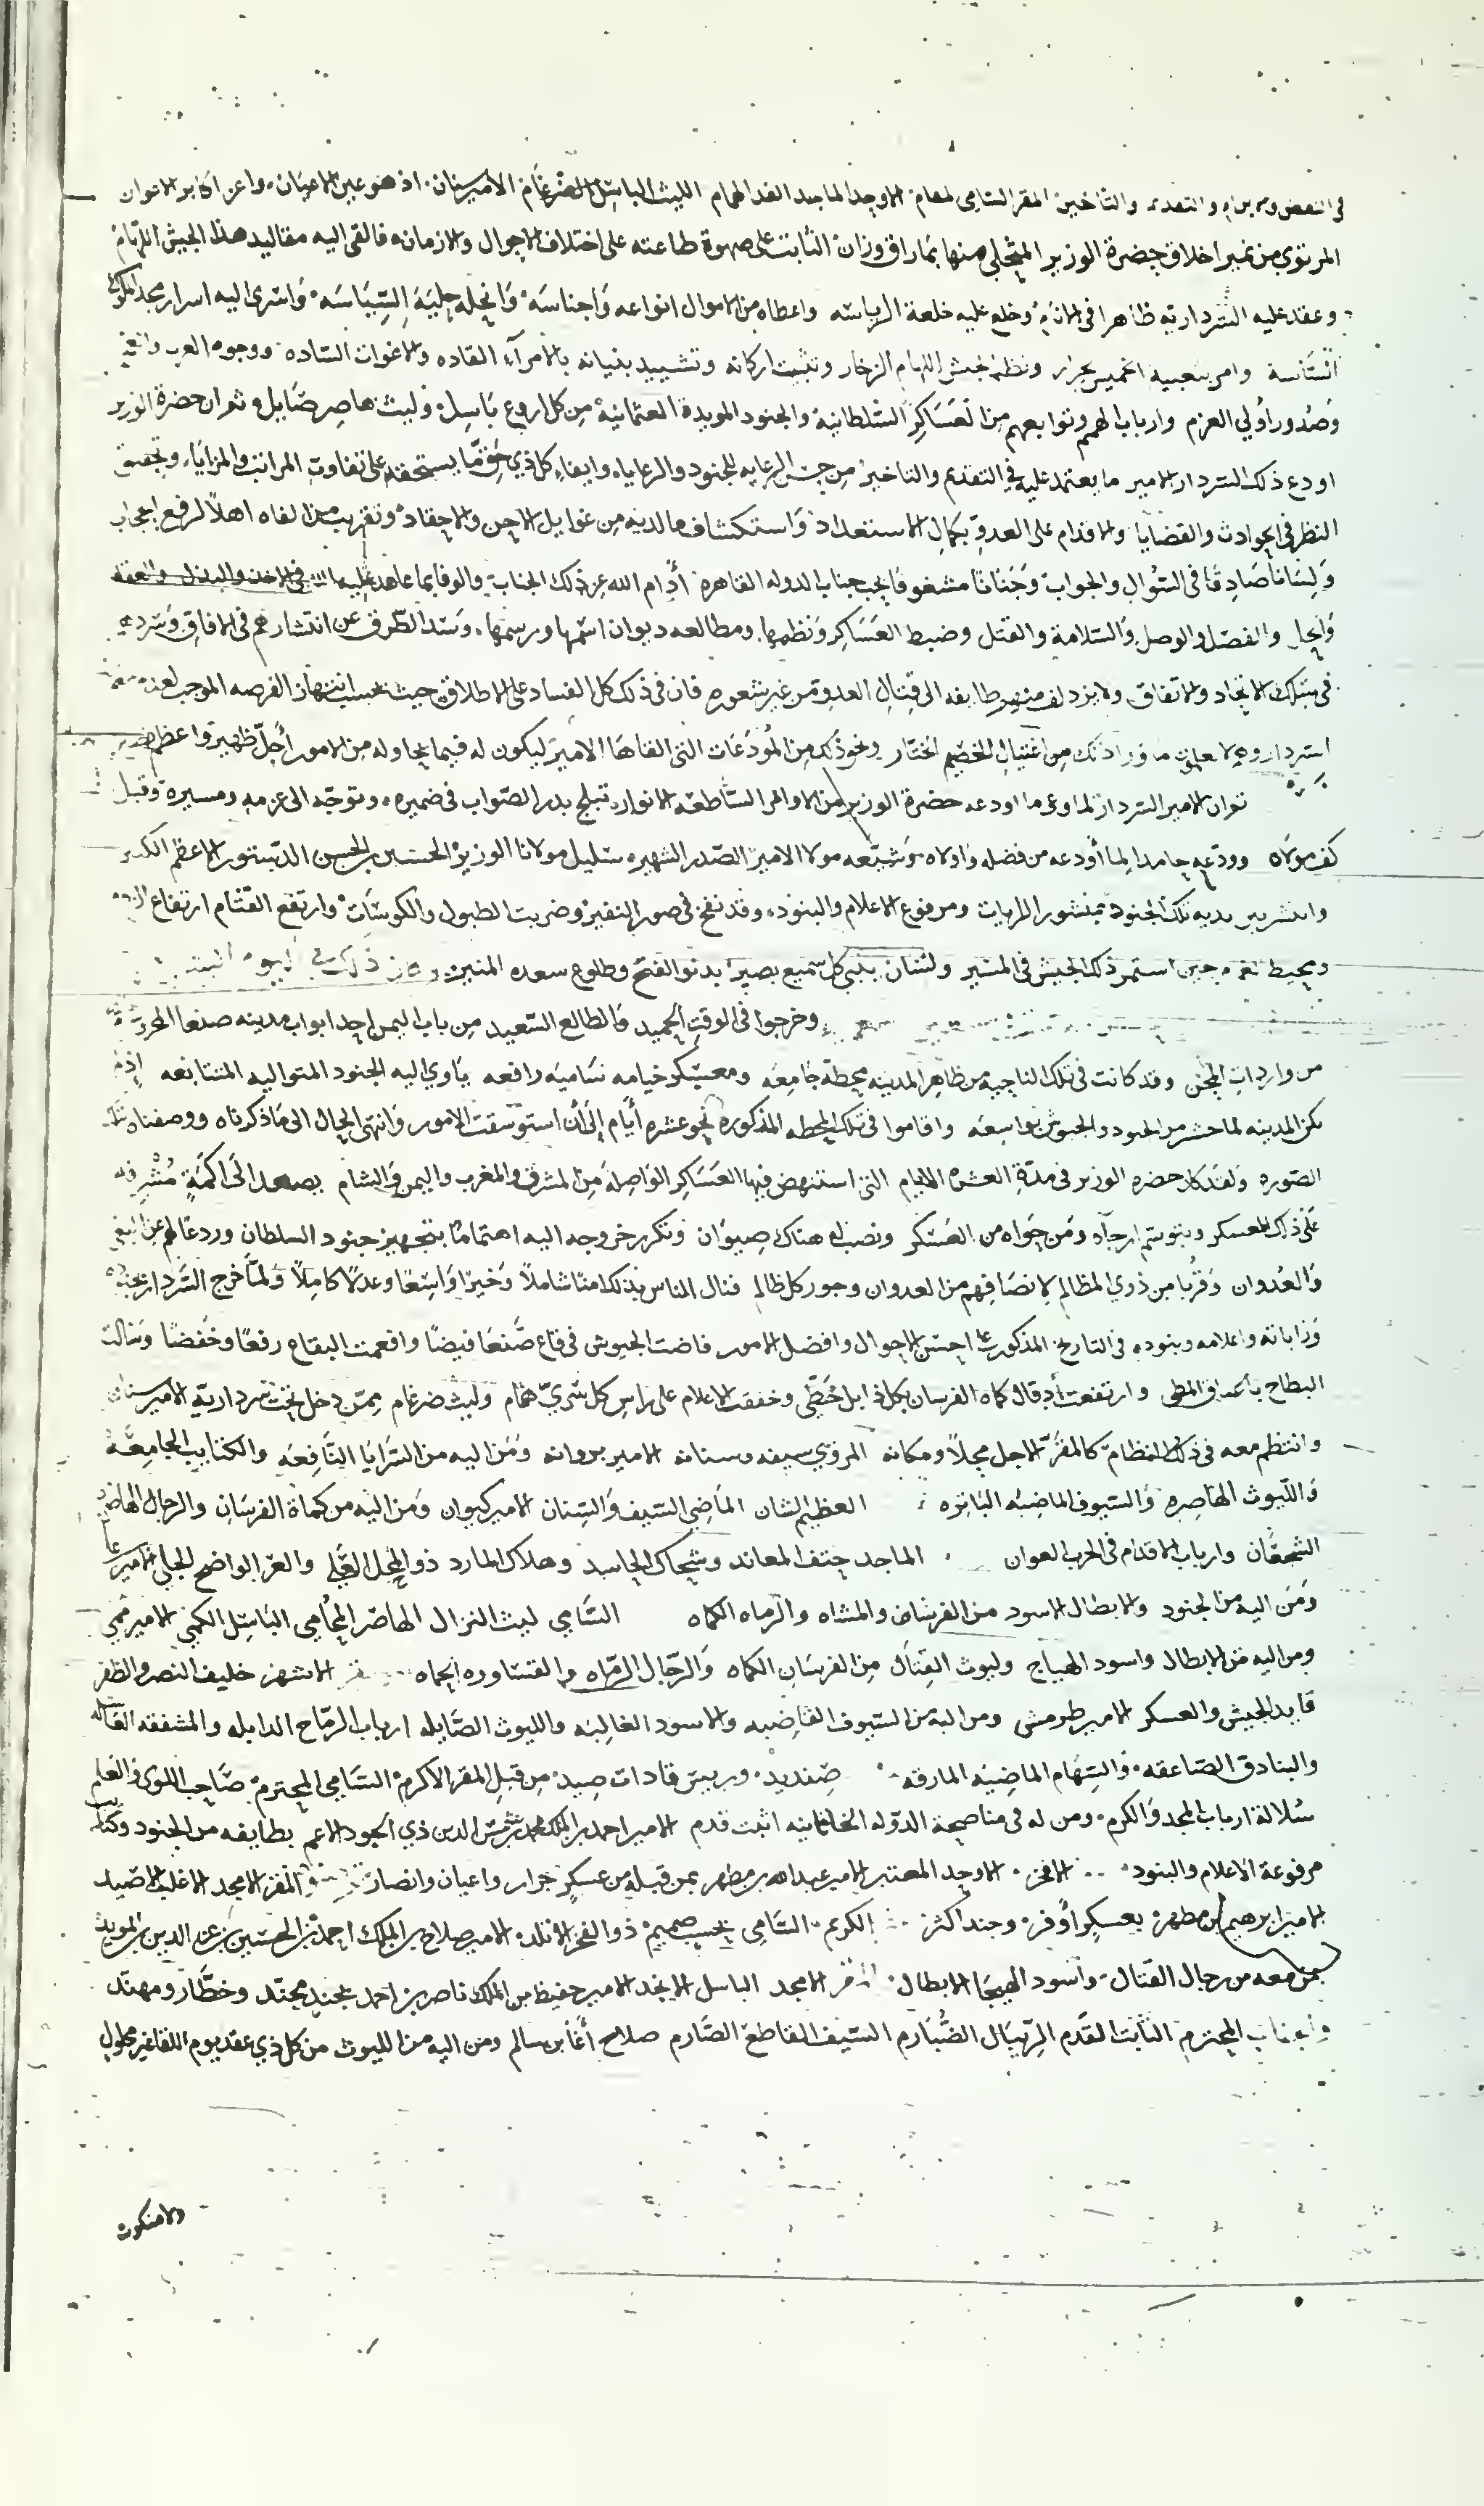 والتاخير المقر السامي لمقام الاوحد الماجد الهمام الليث الباسل الضرغام الامير سنان اذ هو عين الاعيان واعز اكابر الاخوان
المرتوي من نمير اخلاق حضرة الوزير المتحلي منها بما راق وزان الثابت على صهوة طاعته على اختلاف الاحوال والازمان فالقى اليه مقاليد هذا الجيش اللهام
وعقد عليه السردارية ظاهرا في وخلع عليه خلعة الرياسه واعطاه من الاموال انواعه واجناسه وانحله حلية السياسه واسرى اليه اسرار مجد
وامر بتعبيه الخميس الجرار ونظم الجيش اللهام الزخار وتثبيت اركانه وتشييد بنيانه بالامرآء القاده والاغوات الساده ووجوه العرب
وصدور اولي العزم وارباب الهمم وتوابعهم من العساكر السلطانية والجنود المويدة العثمانية من كل اروع باسل وليث هاصر صايل وثم ان حضرة الوزير
اودع ذلك السردار الامير ما يعتمد عليه في التقديم والتاخير من حسن الرعايه للجنود والرعايا وايفاء كل ذي حق ما يستحقه على تفاوت المراتب والمزايا وتحقيق
النظر في الحوادث والقضايا والاقدام على العدو بكمال الاستعداد واستكشاف ما لديه من غوايل الاحن والاحقاد وتقريب من الفاه اهلا لرفع الحجاب
ولسانا صادقا في السؤال والجواب وجنانا مشغوفا بحب جناب الدوله القاهرة أدام الله عز ذلك الجناب والوفا بما عاهد عليه الله في الاخذ والبذل والعقد
والحل والفصل والوصل والسلامة والقتل وضبط العساكر ونظمها ومطالعه ديوان اسمها ورسمها وسد الطرف عن انتشارهم في الافاق وسردهم
في سلك الاتحاد والاتفاق ولا يزدلف منهم طايفه الى قتال العدو من غير شعوره فان في ذلك كل الفساد على الاطلاق حيث يحسب انتهاز الفرصه الموجب لعدم
من اغتيال الخصم الختار ونحو ذلك من المودعات التي القاها الامير ليكون له فيما يحاوله من الامور أجل ظهير واعظم نصير
ثم ان الامير السردار لما وعى ما اودعه حضرة الوزير من الاوامر الساطعه الانوار تبلج بدر الصواب في ضميره وتوجه الى عزمه ومسيره وقبل
كف مولاه وودعه حامدا لما أودعه من فضله واولاه وشيعه مولا الامير الصدر الشهير سليل مولانا الوزير الحسين بن الحسن الدستور الاعظم الكبير
وانتشر بين يديه تلك الجنود بمنشور الرايات ومرفوع الاعلام والبنود وقد نفخ في صور النفير وضربت الطبول والكوسات وارتفع القتام ارتفاع
حين استمر ذلك الجيش في المسير ولسان ينبي كل سميع بصير بدنو الفتح وطلوع سعده المنير وكان ذلك في اليوم
وخرجوا في الوقت الحميد والطالع السعيد من باب اليمن احد ابواب مدينه صنعا المحروسة
من واردات المحن وقد كانت في تلك الناحية من ظاهر المدينه محطة جامعه ومعسكر خيامه ساميه رافعه ياوي اليه الجنود المتواليه المتتابعه اذ لم
تكن المدينه لما حشر من الجنود والجيوش بواسعه واقاموا في تلك المحطه المذكوره نحو عشرة أيام الى ان استوسقت الامور وانتهى الحال الى ما ذكرناه ووصفناه تلك
الصوره ولقد كان حضره الوزير في مدة العشره الايام التي استنهض فيها العساكر الواصله من المشرق والمغرب واليمن والشام يصعد الى اكمة مشرفه
على ذلك المعسكر ويتوسم ارجآه ومن حواه من العسكر ونصب له هناك صيوان وتكرر خروجه اليه اهتماما بتجهيز جنود السلطان وردعا لهم عن البغي
والعدوان وقربا من ذوي المظالم لانصافهم من العدوان وجور كل ظالم فنال الناس بذلك امنا شاملا وخيرا واسعا وعدلا كاملا ولما خرج السردار بجنوده
وراياته واعلامه وبنوده في التاريخ المذكور على احسن الاحوال وافضل الامور فاضت الجيوش في قاع صنعا فيضا وافعمت البقاع رفعا وخفضا وسالت
البطاح باعناق المطي وارتفعت أدقال كماه الفرسان بكل ذابل خطي وخفقت الاعلام على راس كل سري همام وليث ضرغام ممن دخل تحت سردارية الامير سنان
وانتظم معه في ذلك النظام كالمقر الاجل محلا ومكانه المروي سيفه وسنانه الامير بروانه ومن اليه من السرايا النافعه والكتايب الجامعه
والليوث الهاصره والسيوف الماضيه الباتره العظيم الشان الماضي السيف والسنان الامير كيوان ومن اليه من كماة الفرسان والرجال الهاصره
الشجعان وارباب الاقدام في الحرب العوان الماجد حتف المعاند وشجاك الحاسد وهلاك المارد ذو المحل العلي والعز الواضح الجلي الامير علي
ومن اليه من الجنود والابطال الاسود من الفرسان والمشاه والرماه الكماه السامي ليث النزال الهاصر المحامي الباسل الكمي الامير ممي
ومن اليه من الابطال واسود الهياج وليوث القتال من الفرسان الكماه والرجال الرماه والقساوره الحماه الاشهر حليف النصر والظفر
قايد الجيش والعسكر الامير طرمشى ومن اليه من السيوف القاضيه والاسود الغالبه والليوث الصايله ارباب الرماح الذابله والمشفقه القاتله
والبنادق الصاعقه والسهام الماضيه المارقه صنديد وريس قادات صيد من قبل المقر الاكرم السامي المحترم صاحب اللوى والعلم
سلالة ارباب المجد والكرم ومن له في مناصحة الدوله الخاقانيه اثبت قدم الامير احمد بن الملك محمد بن شمس الدين ذي الجود الاعم بطايفه من الجنود وكتايب
مرفوعة الاعلام والبنود الافخر الاوحد المعتبر الامير عبدالله بن مطهر بمن قبله من عسكر جرار واعيان وانصار والمقر الامجد الاغلب الاصيد
الامير ابرهيم بن مطهر بعسكر أوفر وجند اكثر الكريم السامي بحسب صميم ذو الفخر الاتلد الامير صلاح بن الملك احمد بن الحسين بن عز الدين بن المويد
بمن معه من رجال القتال واسود الهيجا الابطال المقر الامجد الباسل الانجد الامير حفيظ بن الملك ناصر بن احمد بجند مجند وخطار ومهند
المحترم الثابت القدم الريبال الضبارم السيف القاطع الصارم صلاح أغا بن سالم ومن اليه من الليوث من كل ذي عقد يوم اللقا غير محلول
ولا منكوث